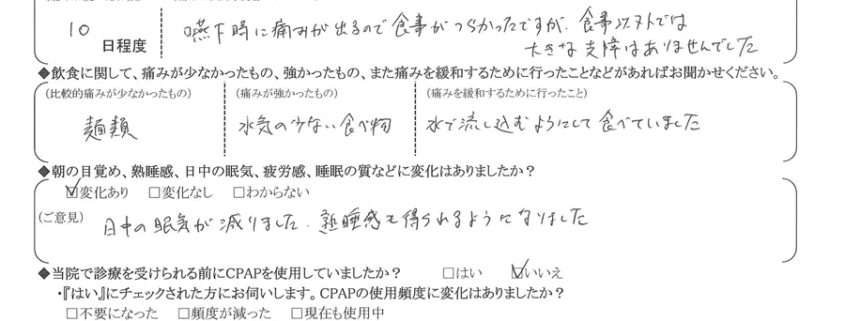 10
日程度
嚥下時に痛みが出るので食事がつらかったですが、食事以外では
大きな支障はありませんでした
◆飲食に関して、痛みが少なかったもの、強かったもの、また痛みを緩和するために行ったことなどがあればお聞かせください。
(比較的痛みが少なかったもの) (痛みが強かったもの) (痛みを緩和するために行ったこと)
麺類 水気の少ない食べ物 水で流し込むようにして食べていました
◆朝の目覚め、熟睡感、日中の眠気、疲労感、睡眠の質などに変化はありましたか?
☑変化あり □変化なし □わからない
(ご意見) 日中の眠気が減りました、熟睡感を得られるようになりました
◆当院で診療を受けられる前にCPAPを使用していましたか? □はい ☑いいえ
・『はい』にチェックされた方にお伺いします。CPAPの使用頻度に変化はありましたか?
□不要になった □頻度が減った □現在も使用中